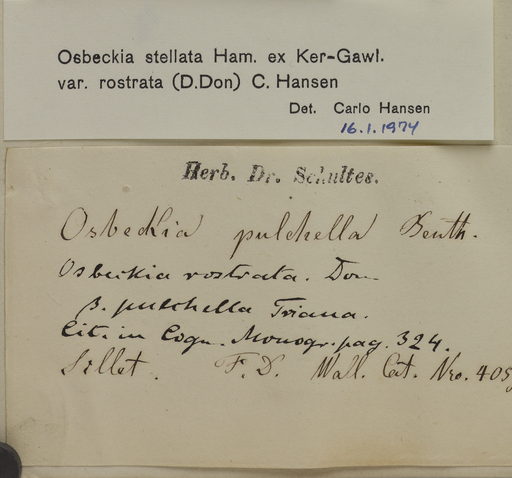 Osbeckia stellata Ham. ex Ker-Gawl.
var. rostrata (D.Don) C. Hansen
Det. Carlo Hansen
16.1.1974
Herb. Dr. Schultes.
Osbeckia pulchella Benth.
Osbeckia rostrata. Don
β. pulchella Triana.
Cit. in Cogn. Monogr. pag. 324.
Sillet. F. D. Wall. Cat. Nro.